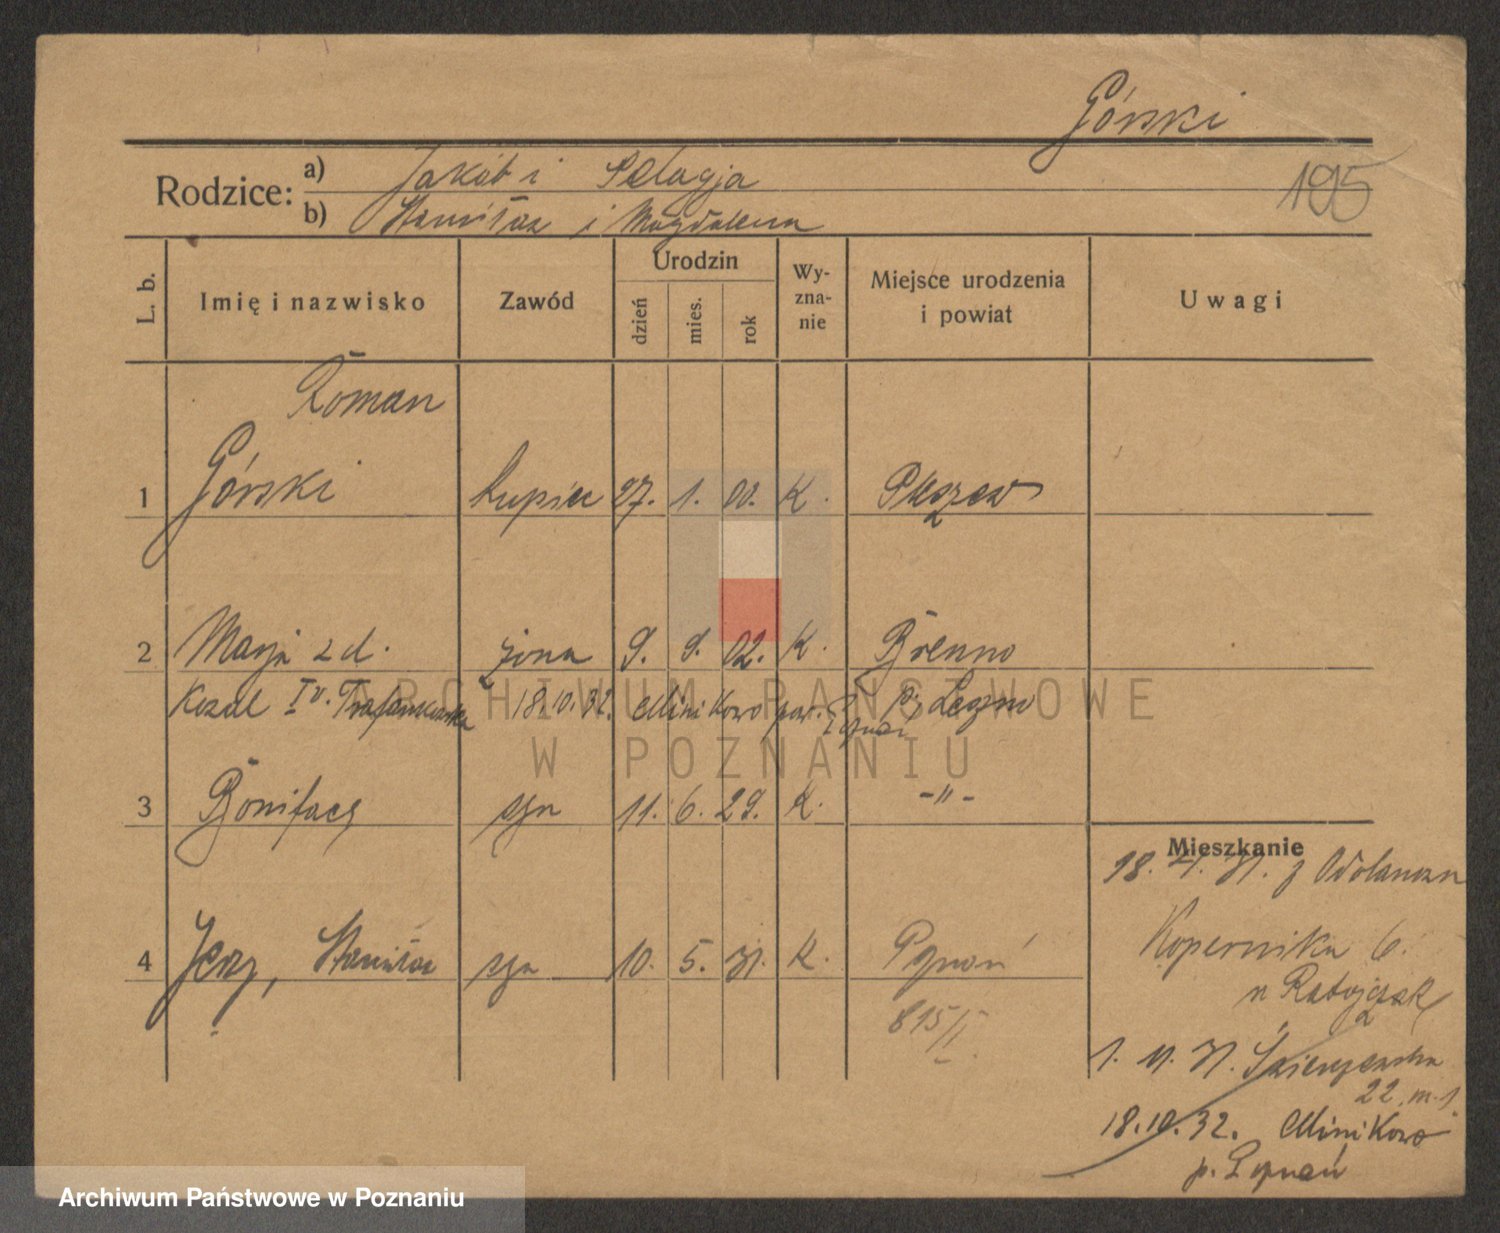 Górski
195
Rodzice: a) Jakób i Pelagja
b) Stanisław i Magdalena
L. b. Imię i nazwisko Zawód Urodzin dzień mies. rok Wy-zna-nie Miejsce urodzenia i powiat Uwagi
Roman
1 Górski kupiec 27. 1. 00. K. Pleszew
2 Marja z d. żona 9. 9. 02. K. Brenno
Kozal I v. 18.10.32. Minikowo pow. p. Leszno
3 Bonifacy syn 11. 6. 29. K. -"-
Mieszkanie
18. 4. 31. z Odolanowa
4 Jerzy, Stanisław syn 10. 5. 31. K. Poznań
Kopernika 6.
u Ratajczak
815/II
1. 11. 31.
22. m. 1.
18.10.32. Minikowo
p. Poznań
ARCHIWUM PAŃSTWOWE
W POZNANIU
Archiwum Państwowe w Poznaniu